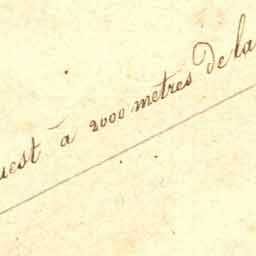 uest à 2000 mètres De la